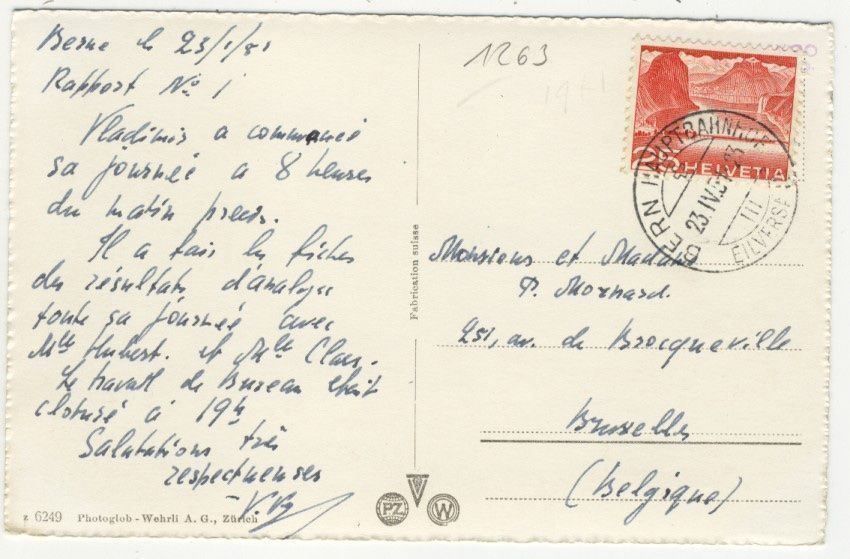 Berne le 23/1/51
Rapport No 1
Vladimir a commencé
sa journée à 8 heures
du matin précis.
Il a fait les fiches
des résultats d'analyse
toute sa journée avec
Mlle Hubert. et Mlle Claus.
Le travail de Bureau était
cloturé à 19h
Salutations très
respectueuses
z 6249 Photoglob - Wehrli A. G., Zürich
Fabrication suisse
PZ
W
1263
HELVETIA
BERN HAUPTBAHNHOF
23 IV 51
III
EILVERSAND
Monsieur et Madame
P. Mornard.
251, av. de Brocqueville
Bruxelles
(Belgique)